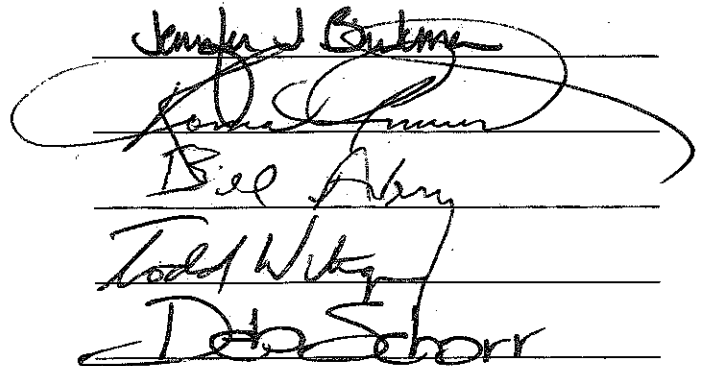 Jennifer J Brinkman
Roma
Bill Avery
Todd Wiltgen
Deb Schorr